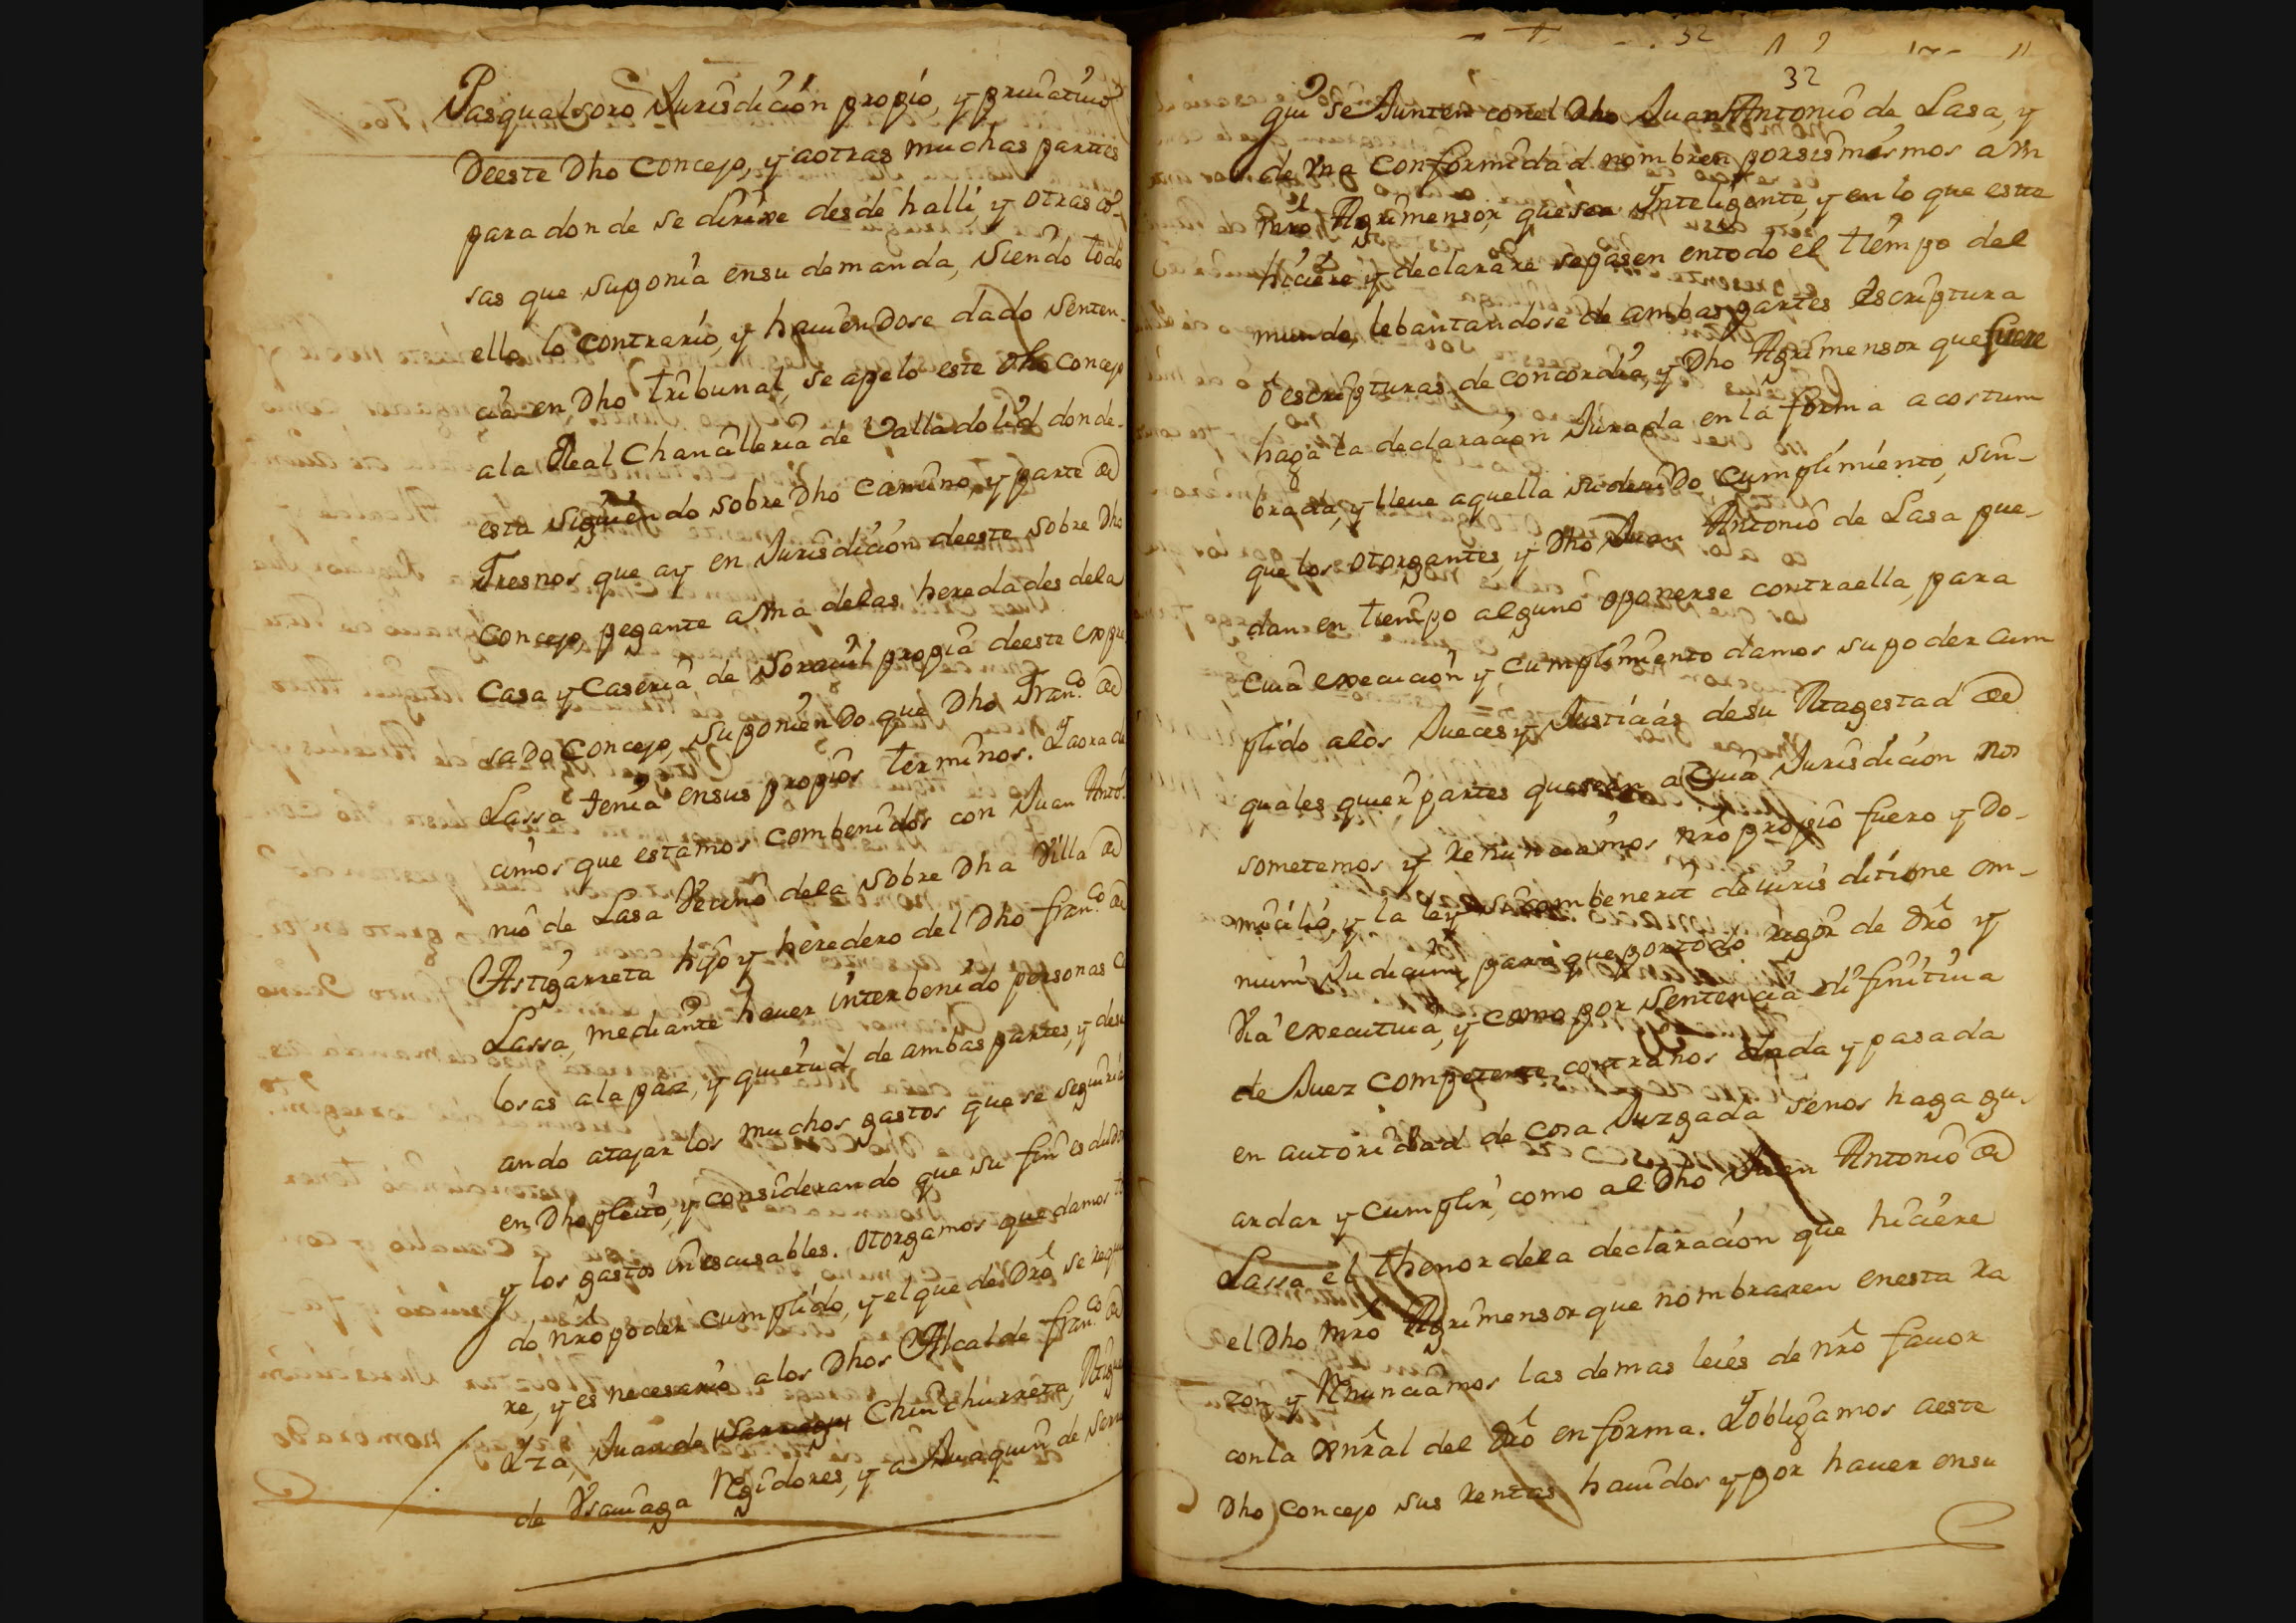 Pasqualsoro Jurisdición propio, y priuatiuo
Deeste Dho Concejo, y aotras muchas partes
para donde se dirixe desde halli, y otras co-
sas que suponia ensu demanda, siendo todo
ello lo contrario, y hauiendose dado senten-
cia en Dho tribunal, se apelo este Dho Concejo
ala Real Chancilleria de Valladolid donde
esta siguiendo sobre Dho camino, y parte de
Fresnos que ay en Jurisdición deeste sobre Dho
Concejo, pegante a Vna delas heredades dela
Casa y Caseria de Soraiuil propia deeste expre
sado Concejo, suponiendo que Dho Franco. de
Lassa tenia ensus propios terminos. Y aora de
cimos que estamos combenidos con Juan Anto-
nio de Lasa Vecino dela sobre Dha Villa de
Astigarreta hijo y heredero del Dho Franco. de
Lassa, mediante hauer interbenido personas ce
losas ala paz, y quietud de ambas partes, y dese
ando atajar los muchos gastos que se seguiria
en Dho pleito, y considerando que su fin es dudo
y los gastos inescusables. Otorgamos que damos to
do nro poder cumplido, y el que de Dro se requie
re, y es necesario alos Dhos Alcalde Franco. de
Yza, Juan de Chinchurreta, Migue
de Vsauiaga Regidores, y a Juaquin de
32
32
que se Junten conel Dho Juan Antonio de Lasa, y
de Vna Conformidad nombren porsimismos a Vn
Mro Agrimensor, que sea Inteligente, y en lo que este
hiciere y declarare se pasen entodo el tiempo del
mundo, lebantandose de ambas partes Escriptura
ô escripturas de concordia, y Dho Agrimensor que fuere
haga la declaración Jurada en la forma acostum
brada, y lleue aquella su deuido Cumplimiento, sin-
que los otorgantes, y Dho Juan Antonio de Lasa pue-
dan en tiempo alguno oponerse contraella, para
cuia execución y cumplimiento damos su poder cum
plido alos Jueces y Justicias desu Magestad de
quales quier partes quesean a Cuia Jurisdición nos
sometemos y renunciamos nro propio fuero y do-
micilio, y la ley si combenerit de iuris ditione om-
nium Judicum, para que portodo rigor de Dro y
Via executiua, y como por sentencia difinitiua
de Juez Competente contranos dada y pasada
en autoridad de cosa Juzgada senos haga gu-
ardar y cumplir, como al Dho Juan Antonio de
Lassa el thenor dela declaración que hiciere
el Dho Mro Agrimensor que nombraren enesta ra
zon, y Renunciamos las demas leies de nro fauor
conla xnral del Dro en forma. Y obligamos aeste
Dho Concejo sus rentas hauidos y por hauer ensu